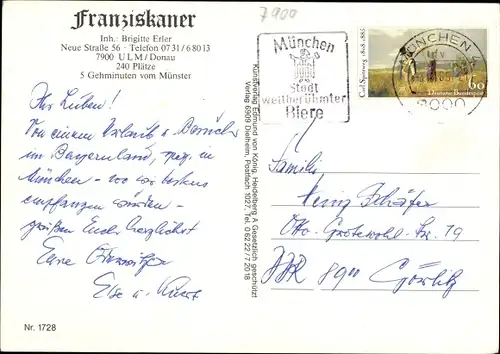 7900
Franziskaner
Inh.: Brigitte Erler
Neue Straße 56 · Telefon 0731/68013
7900 ULM/Donau
240 Plätze
5 Gehminuten vom Münster
München
Stadt
weltberühmter
Biere
Carl Spitzweg 1808-1885
60
Deutsche Bundespost
MÜNCHEN
8000
Ihr Lieben!
Von einem Urlaub u. Besuch
im Bayernland,
München - wo wir bestens
empfangen wurden -
grüßen Euch herzlichst
Eure
Else u. Kurt
Kunstverlag Edmund von König, Heidelberg A Gesetzlich geschützt
Verlag 6909 Dielheim, Postfach 1027, Tel. 06222/72018
Familie
Heinz Schäfer
Otto-Grotewohl-Str. 79
DDR 8900 Görlitz
Nr. 1728